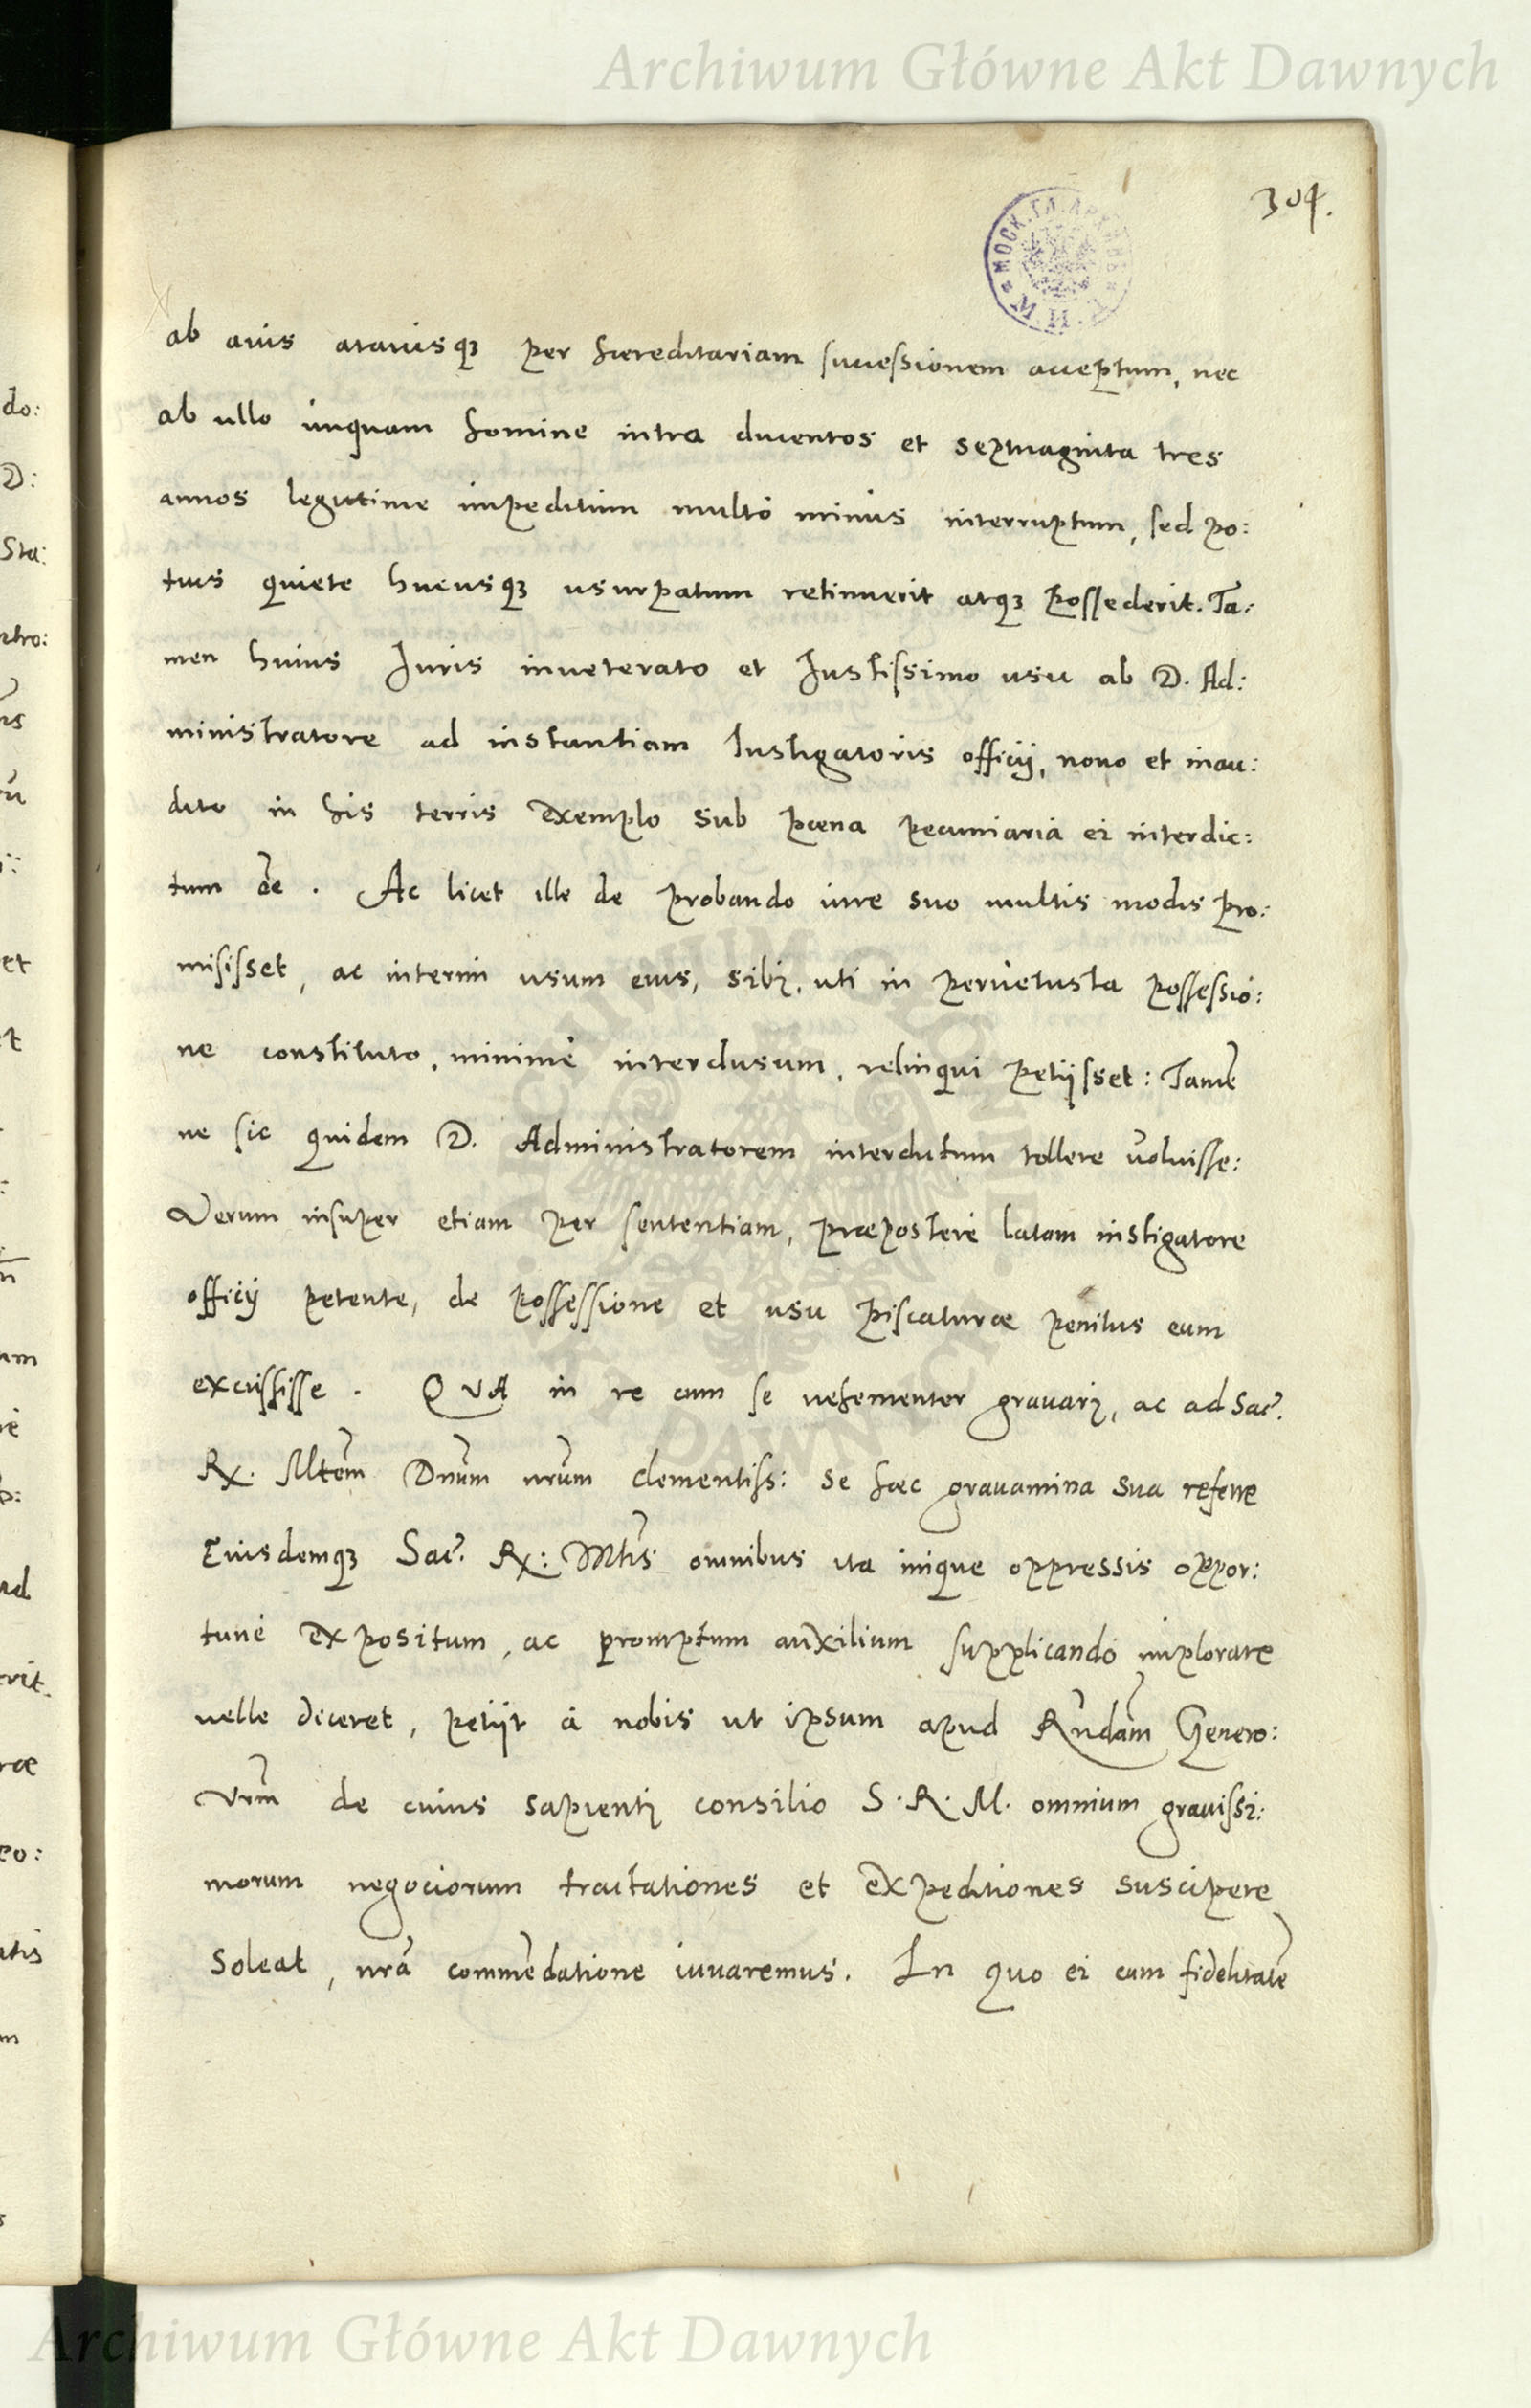 Archiwum Główne Akt Dawnych
304.
ab auis atauisq3 per hæreditariam successionem acceptum, nec
ab ullo unquam homine intra ducentos et septuaginta tres
annos legitime impeditum multò minus interruptum, sed po:
tius quiete hucusq3 usurpatum retinuerit atq3 possederit. Ta:
men huius Juris inueterato et Justissimo usu ab D. Ad:
ministratore ad instantiam Instigatoris officij, nouo et inau:
dito in his terris exemplo sub pœna pecuniaria ei interdic:
tum ēe. Ac licet ille de probando iure suo multis modis pro:
misisset, ac interim usum eius, sibi, uti in peruetusta possessio:
ne constituto, minimè interclusum, relinqui petijsset: Tamē
ne sic quidem D. Administratorem interdictum tollere uoluisse:
Verum insuper etiam per sententiam, præposterè latam instigatore
officij petente, de possessione et usu piscaturæ penitus eum
excussisse. QVA in re cum se uehementer grauari, ac ad Sac.
Rx. Mtem Dnum nrum clementiss: se hæc grauamina sua referre
Eiusdemq3 Sac. Rx: Mtis omnibus ita iniquè oppressis oppor:
tunè expositum, ac promptum auxilium supplicandò implorare
uelle diceret, petijt à nobis ut ipsum apud Rndam Genero:
Vrm de cuius sapienti consilio S. R. M. omnium grauissi:
morum negociorum tractationes et expeditiones suscipere
soleat, nrā commēdatione iuuaremus. In quo ei cum fidelitatē
do:
D:
Sta:
et
um
ad
rit.
atis
Archiwum Główne Akt Dawnych